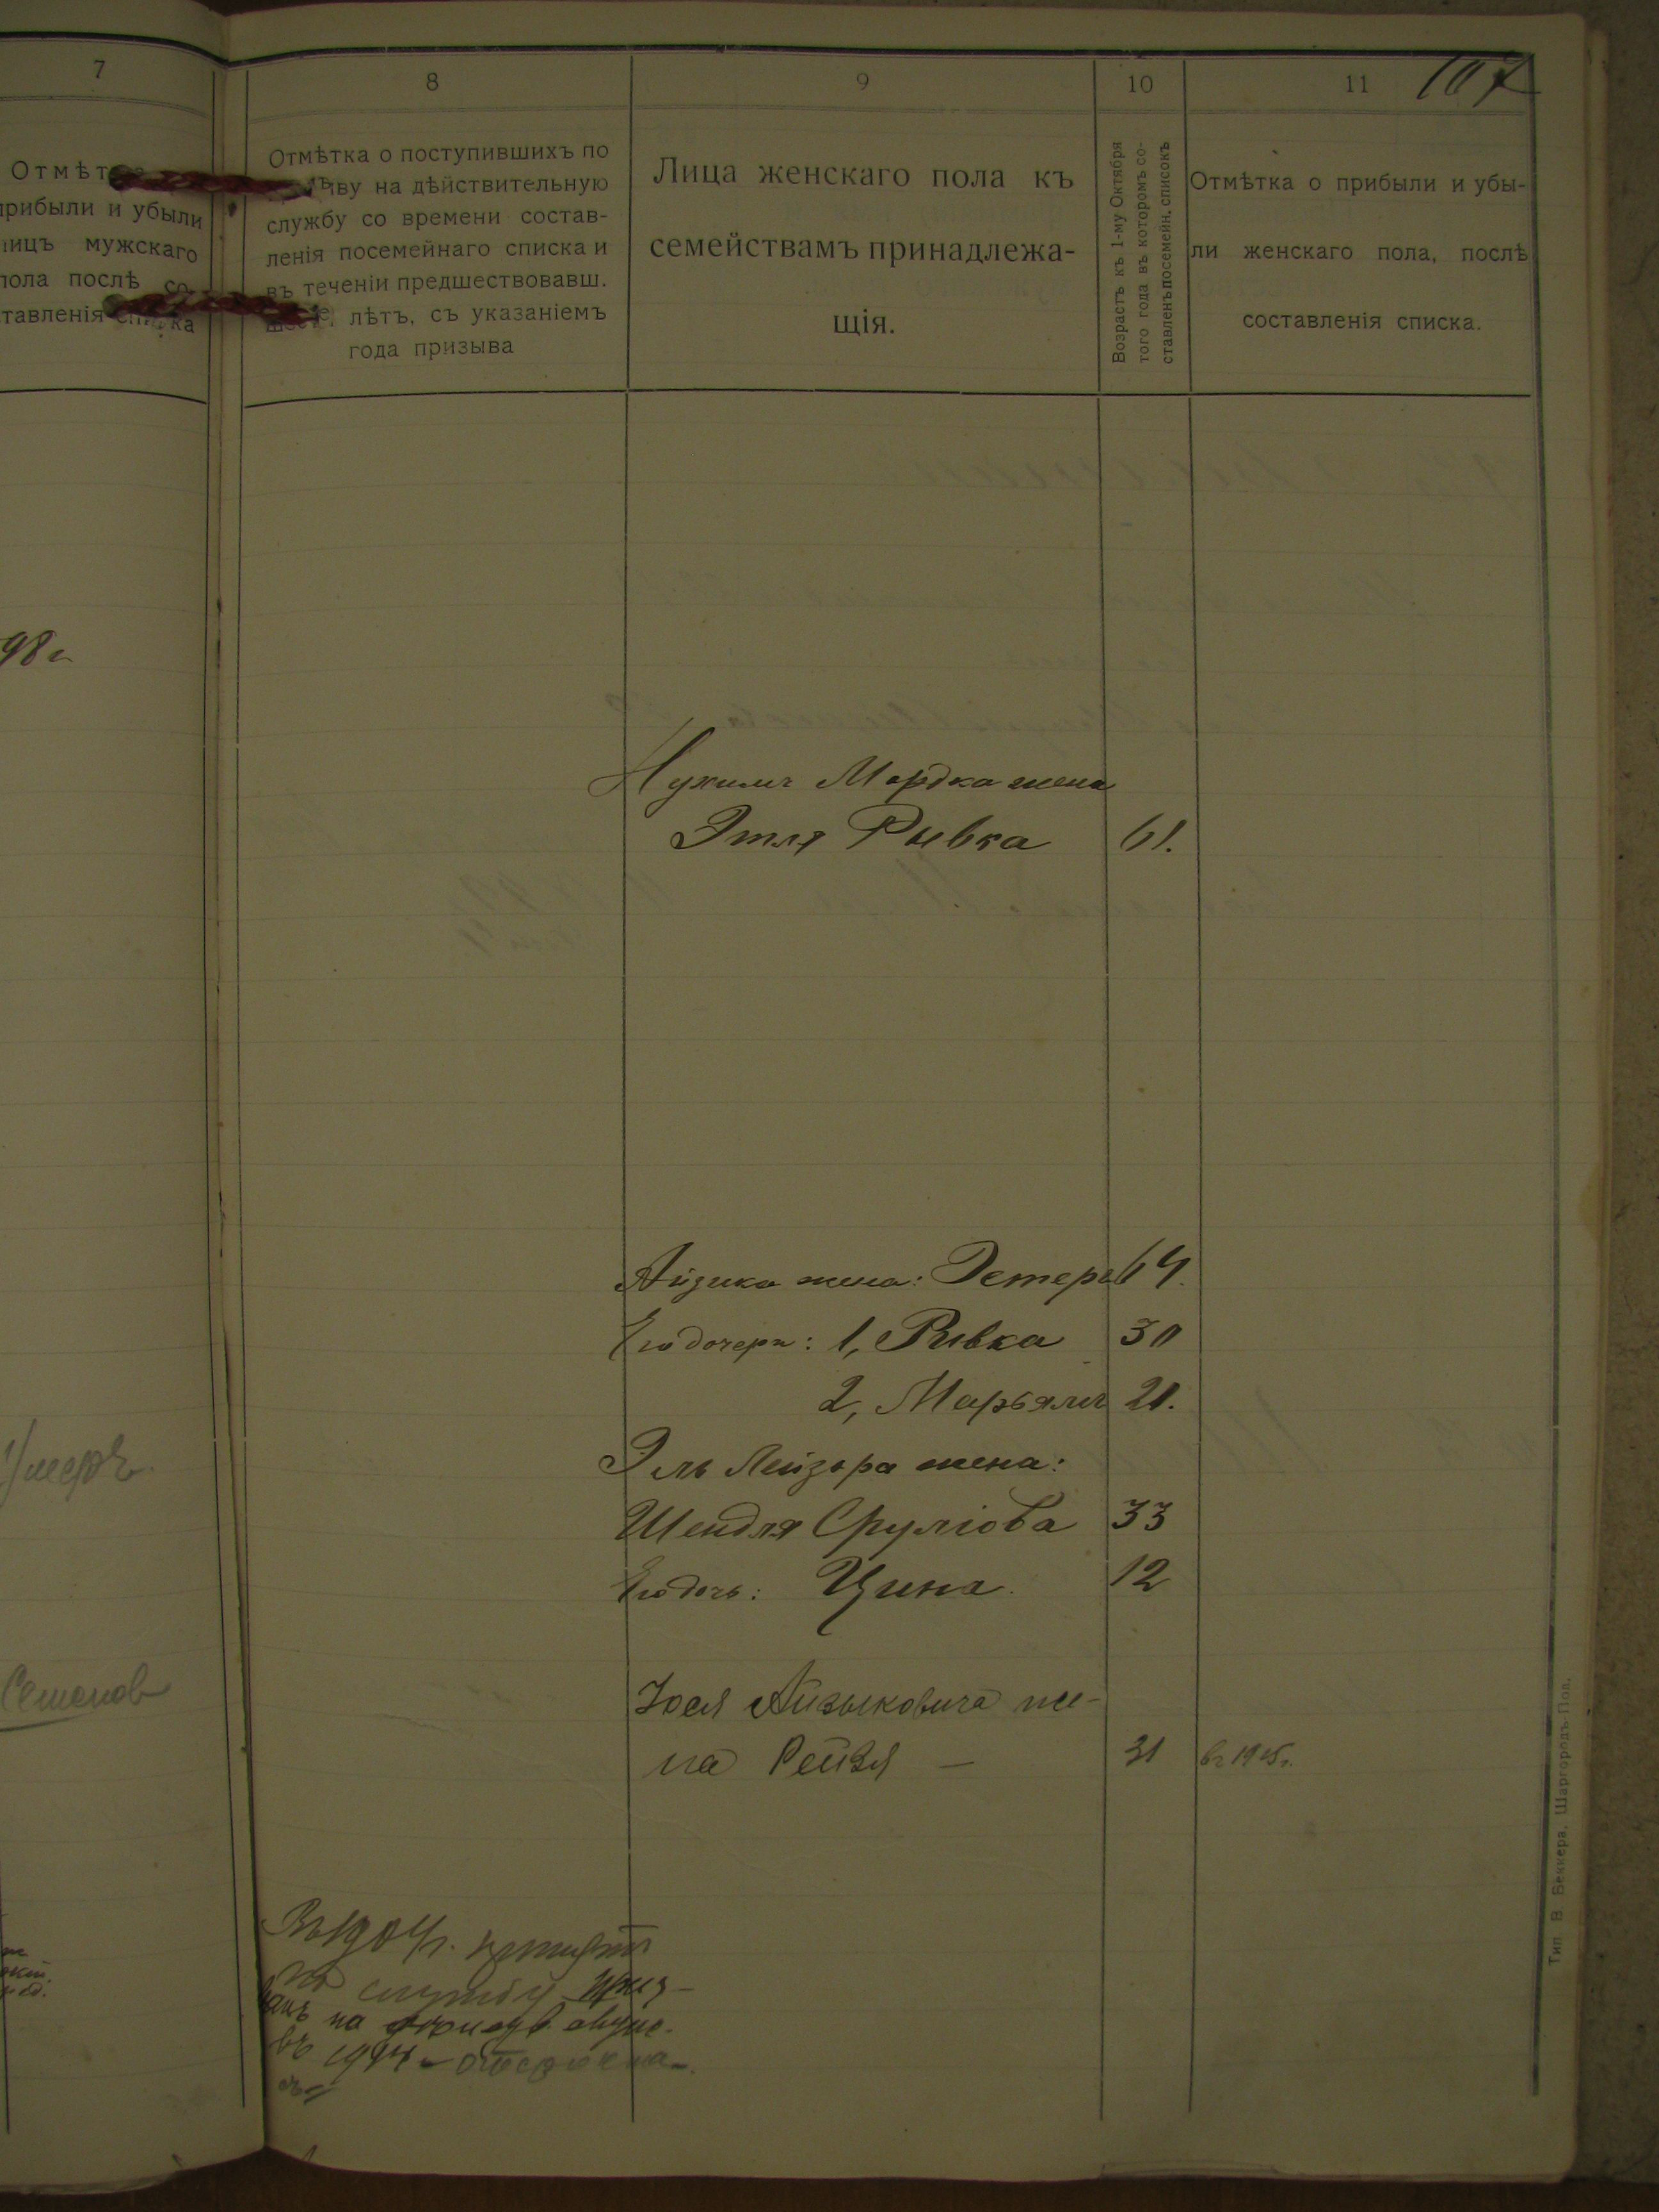 7
Отмѣт
прибыли и убыли
лицъ мужскаго
пола послѣ со-
ставленія списка
98 г
Умеръ
Семенов
8
Отмѣтка о поступившихъ по
на дѣйствительную
службу со времени состав-
ленія посемейнаго списка и
въ теченіи предшествовавш.
лѣтъ, съ указаніемъ
года призыва
9
Лица женскаго пола къ
семействамъ принадлежа-
щія.
10
Возрастъ къ 1-му Октября
того года въ которомъ со-
ставленъ посемейн. списокъ
11
107
Отмѣтка о прибыли и убы-
ли женскаго пола, послѣ
составленія списка.
Нухимъ Мордка жена
Этля Рывка 61.
Айзика жена: Эстеръ 64.
Его дочери: 1, Ривка 30
2, Марьямъ 20.
Эль Лейзора жена:
Шендля Сруліова 33
Его дочь: Цина. 12
Іося Айзыковича же-
на Рейзя — 31 въ 1905г.
Въ 1904г. принятъ
на службу
на
въ 1914
Тип. В. Беккера, Шаргородъ-Под.